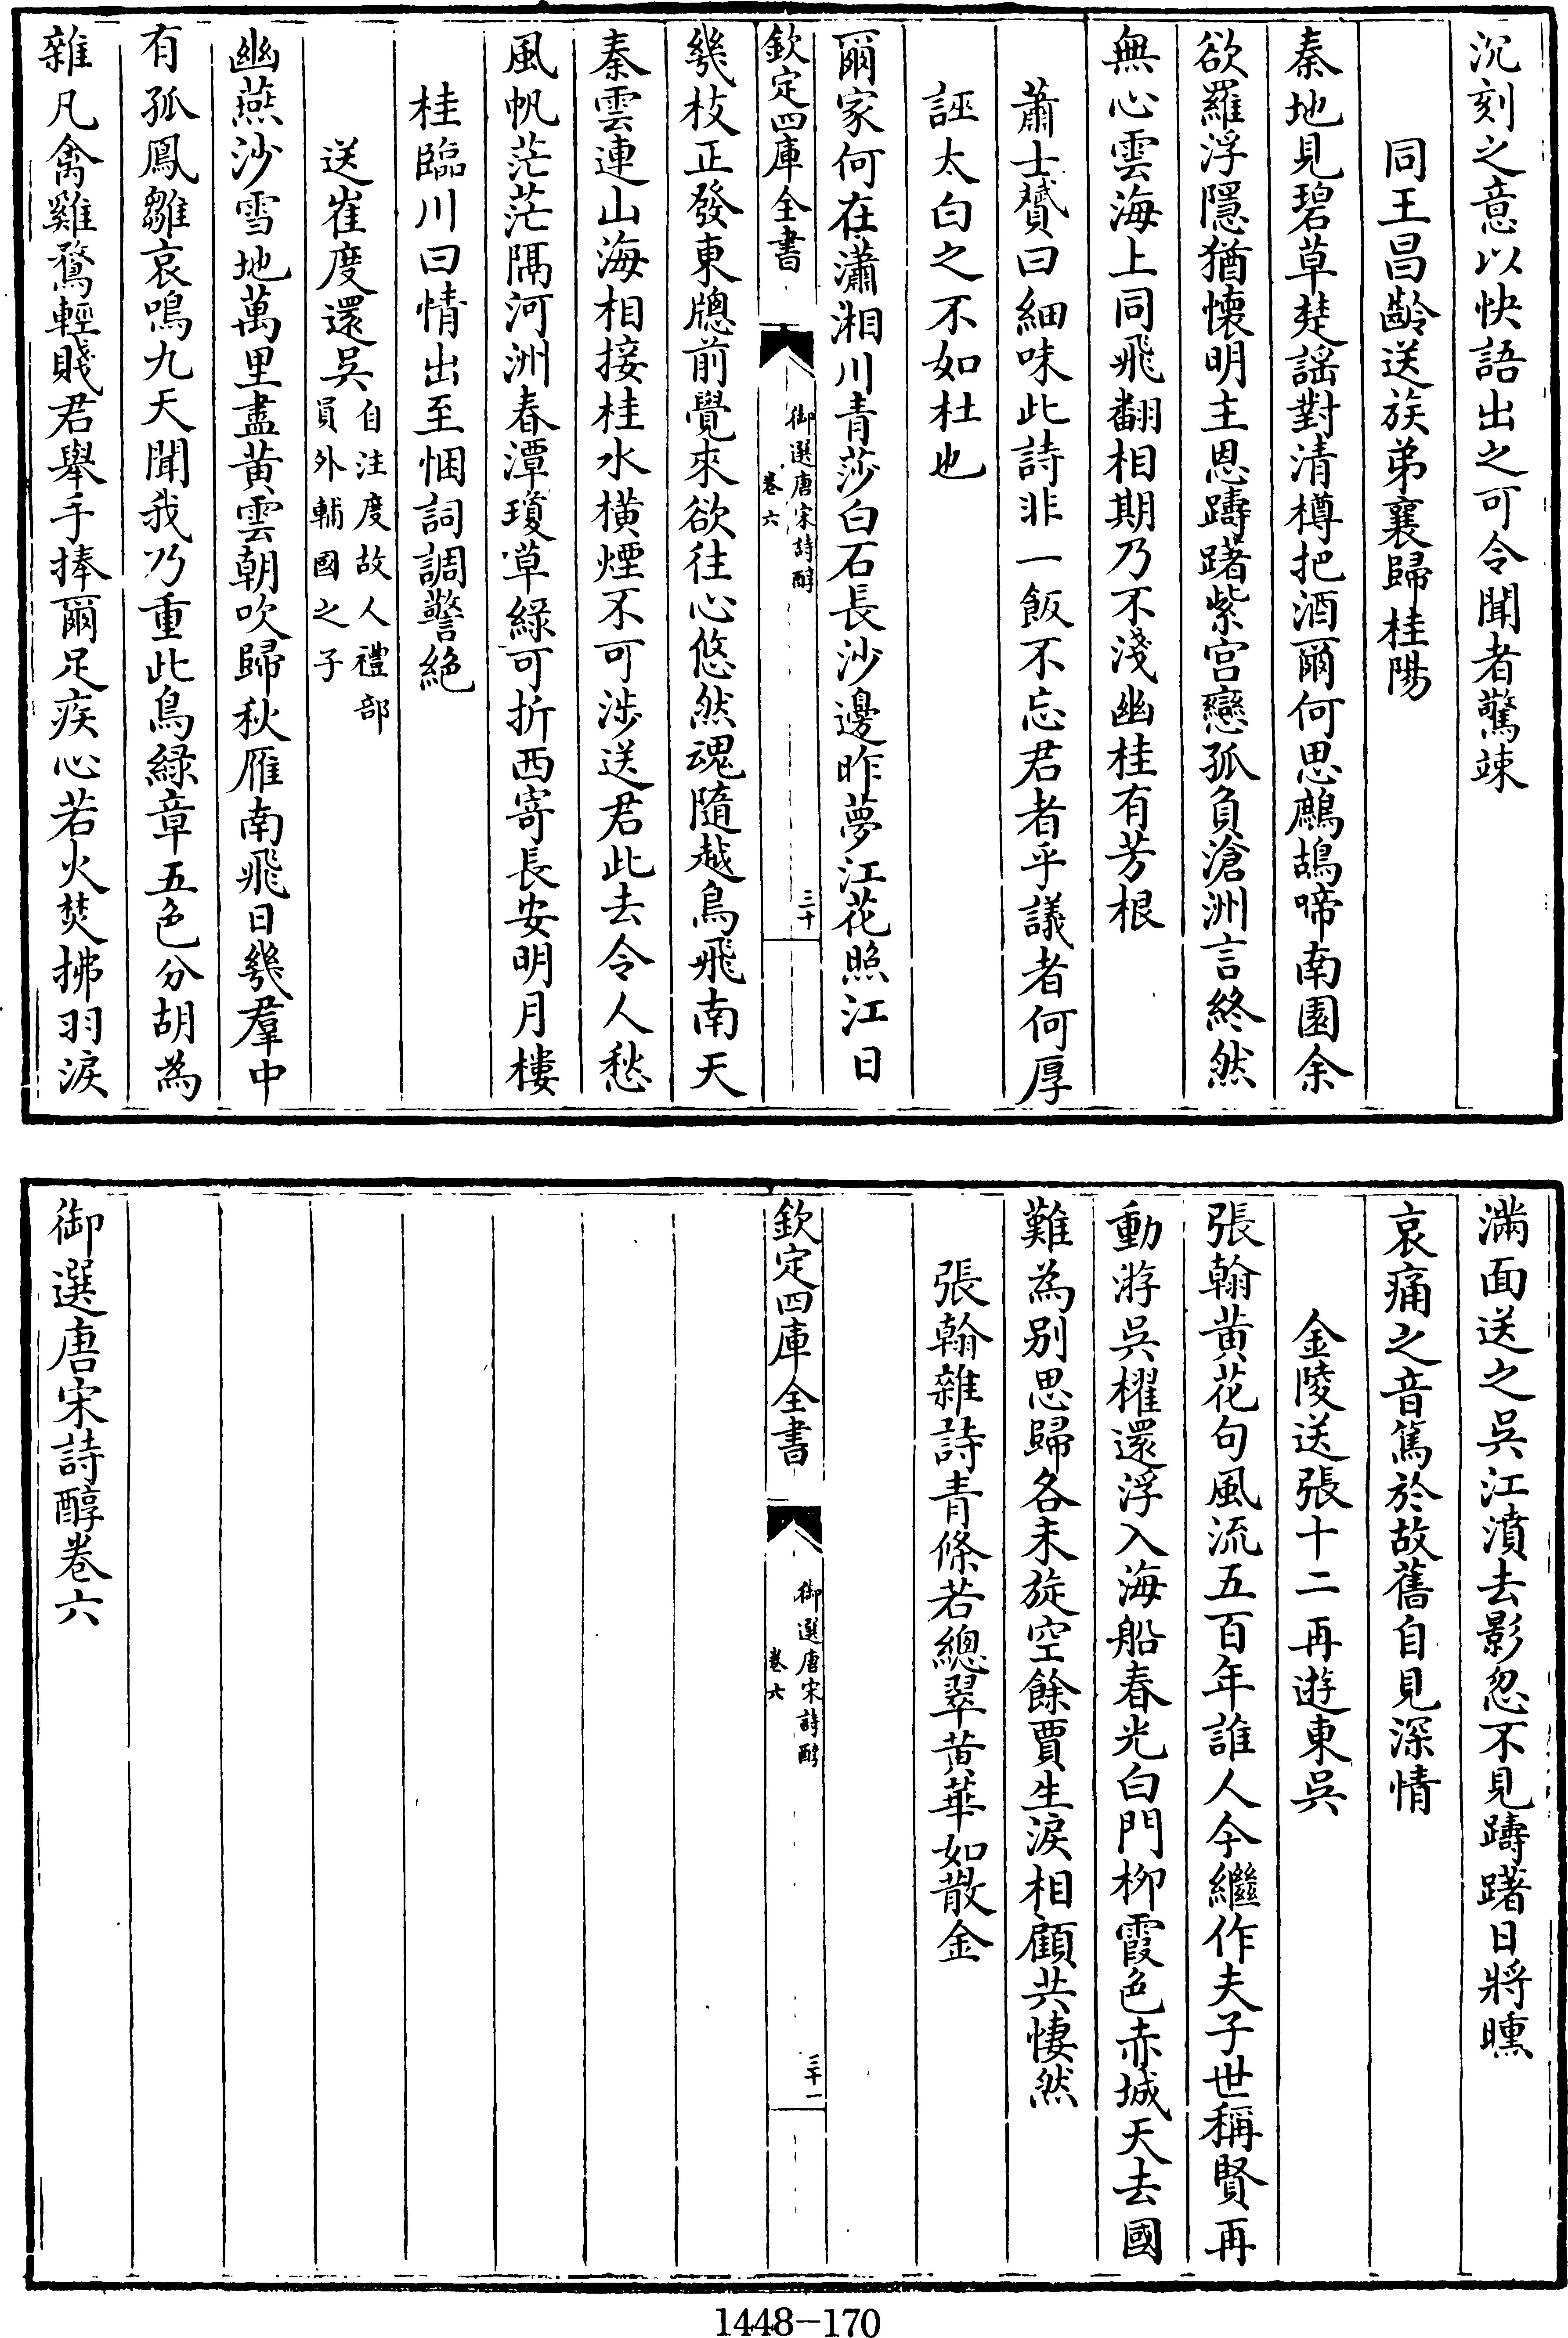 沉刻之意以快語出之可令聞者驚竦
同王昌齡送族弟襄歸桂陽
秦地見碧草楚謡對清樽把酒爾何思鷓鴣啼南園余
欲羅浮隱猶懷明主恩躊躇紫宫戀孤負滄洲言終然
無心雲海上同飛翻相期乃不淺幽桂有芳根
蕭士贇曰細味此詩非一飯不忘君者乎議者何厚
誣太白之不如杜也
爾家何在瀟湘川青莎白石長沙邊昨夢江花照江日
欽定四庫全書
御選唐宋詩醇
卷六
三十
幾枝正發東牕前覺來欲往心悠然魂隨越鳥飛南天
秦雲連山海相接桂水横煙不可涉送君此去令人愁
風帆茫茫隔河洲春潭瓊草綠可折西寄長安明月樓
桂臨川曰情出至悃詞調警絶
送崔度還吳
自注度故人禮部
員外輔國之子
幽燕沙雪地萬里盡黄雲朝吹歸秋雁南飛日幾羣中
有孤鳳雛哀鳴九天聞我乃重此鳥綠章五色分胡為
雜凡禽雞鶩輕賤君舉手捧爾足疾心若火焚拂羽淚
滿面送之吳江濆去影忽不見躊躇日將曛
哀痛之音篤於故舊自見深情
金陵送張十二再遊東吳
張翰黄花句風流五百年誰人今繼作夫子世稱賢再
動游吳櫂還浮入海船春光白門柳霞色赤城天去國
難為别思歸各未旋空餘賈生淚相顧共悽然
張翰雜詩青條若總翠黄華如散金
欽定四庫全書
御選唐宋詩醇
卷六
三十一
御選唐宋詩醇卷六
1448-170